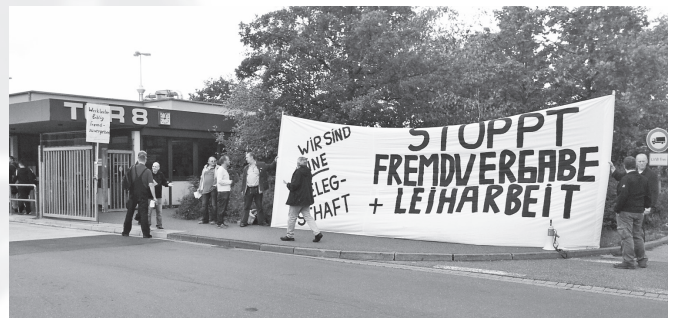 TOR 8
WIR SIND
EINE
BELEG-
SCHAFT
STOPPT
FREMDVERGABE
+ LEIHARBEIT